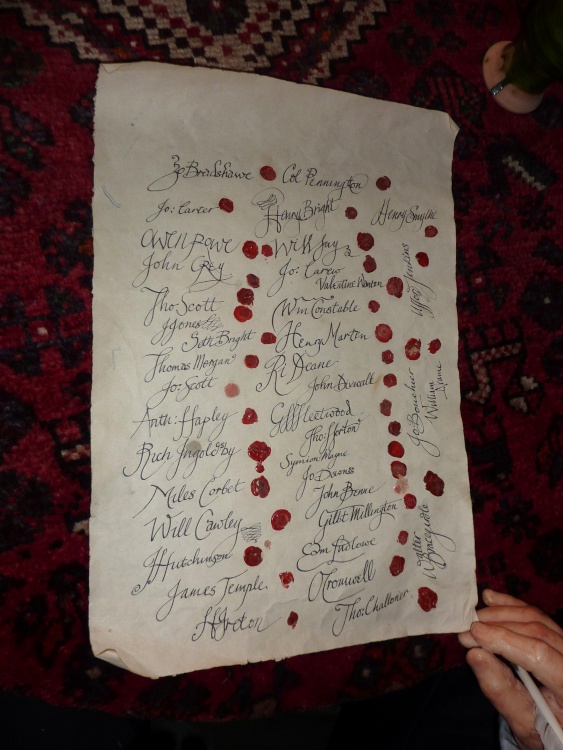 Jo Bradshawe
Jo: Carew
Owen Rowe
John Grey
Tho: Scott
JJones
Seth Bright
Thomas Morgan
Jo: Scott
Anth: Hapley
Rich Ingoldsby
Miles Corbet
Will Cawley
JHutchinson
James Temple
HIreton
Col Pennington
Henry Bright
Will Jay
Jo: Carew
Valentine Wanton
Wm Constable
Henry Marten
Ri Deane
John Dixwall
Gill Fleetwood
Tho: Horton
Symion Mayne
Jo Downes
John Benne
Gilbt Millington
Edm Ludlowe
OCromwell
Tho: Challoner
Henry Smythe
Jenkins
Jo Boucher
William
Walter